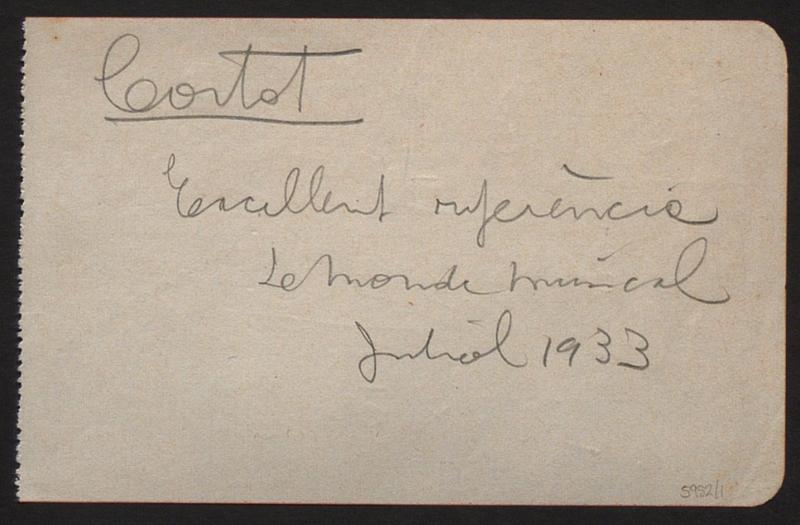 Cortot
Excellent referència
Le Monde musical
Juliol 1933
5982/1